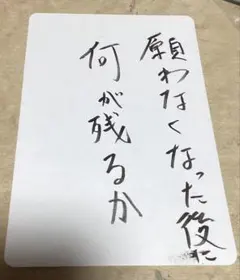 願わなくなった後に
何が残るか